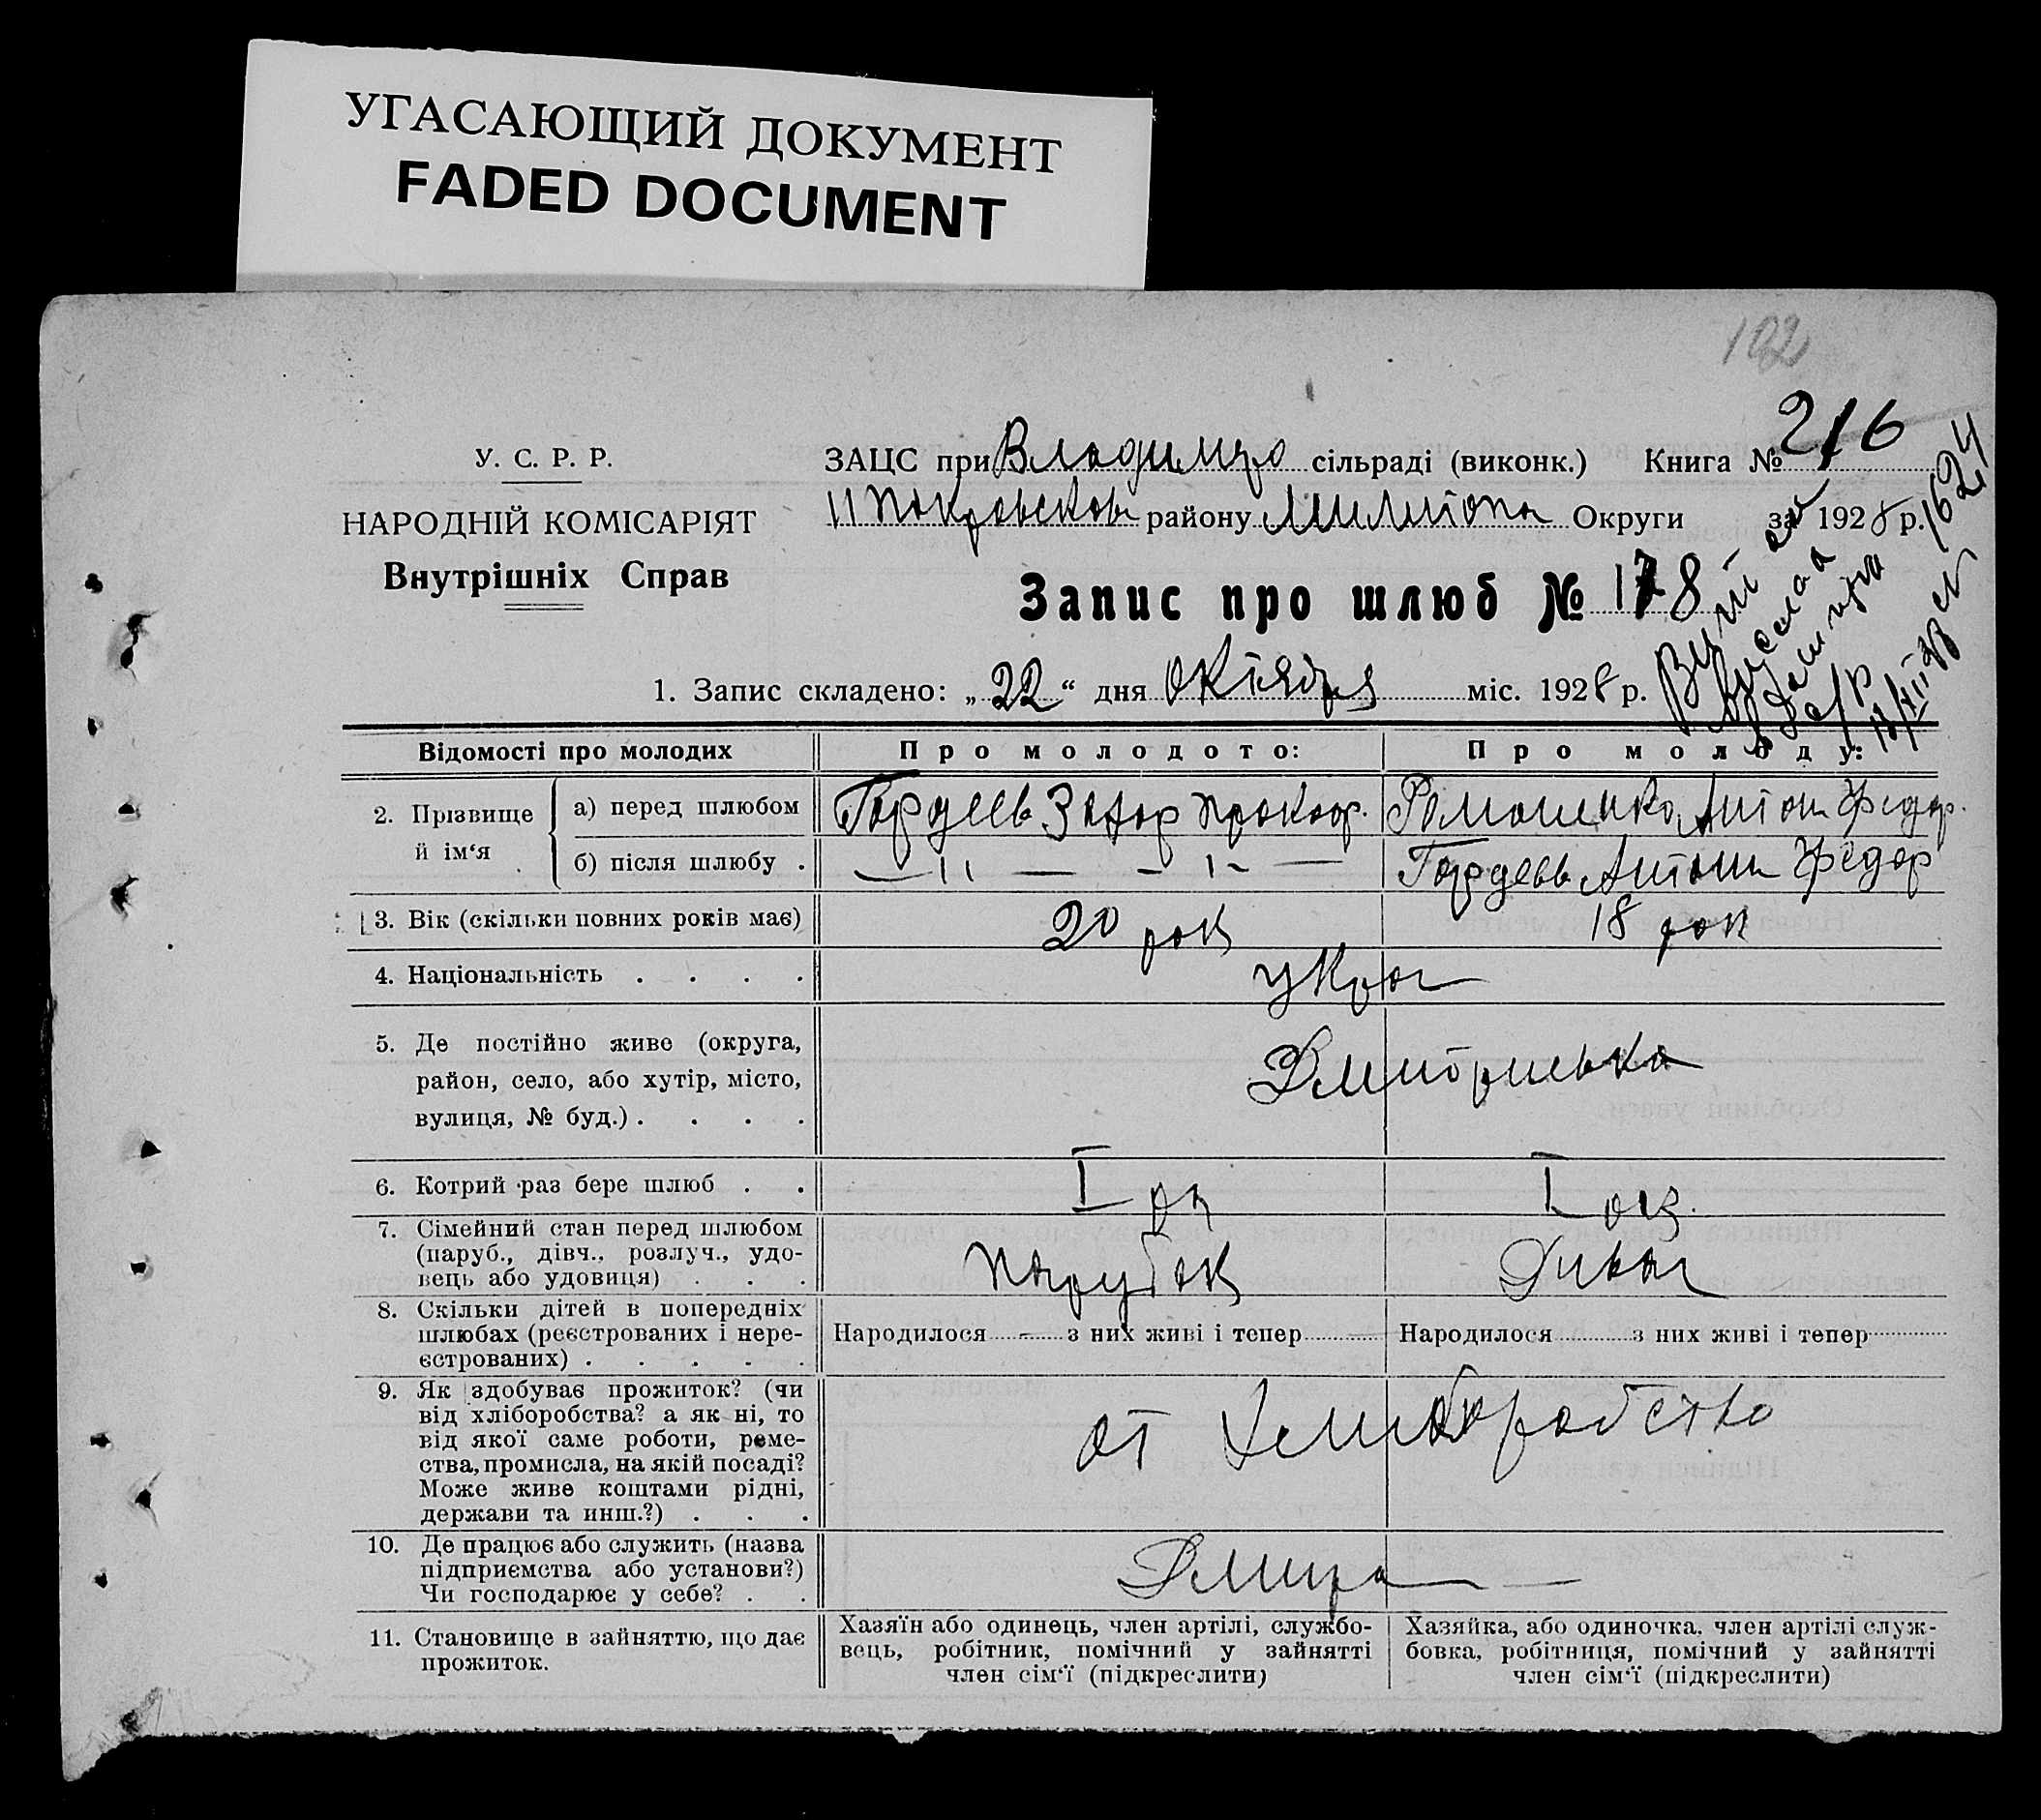 УГАСАЮЩИЙ ДОКУМЕНТ
FADED DOCUMENT
102
У. С. Р. Р.
НАРОДНІЙ КОМІСАРІЯТ
Внутрішніх Справ
ЗАЦС при Владимиро сільраді (виконк.) Книга № 216
Покровсков району Милитопо Округи за 1928 р.
1624
Запис про шлюб № 178
1. Запис складено: „22“ дня октября міс. 1928 р.
Відомості про молодих Про молодого: Про молоду:
2. Прізвище й ім‘я
а) перед шлюбом Гордеев Захар Прокоф. Романенко Антон Федор.
б) після шлюбу . — 〃 — - 〃 - — Гордеев Антон Федор
3. Вік (скільки повних років має) 20 рок 18 рок
4. Національність . . . . Укра
5. Де постійно живе (округа,
район, село, або хутір, місто,
вулиця, № буд.) . . . .
Дмитриевка
6. Котрий раз бере шлюб . . I раз I раз.
7. Сімейний стан перед шлюбом
(паруб., дівч., розлуч., удо-
вець або удовиця) . . .
Парубок Дивка
8. Скільки дітей в попередніх
шлюбах (реєстрованих і нере-
єстрованих) . . . . .
Народилося - з них живі і тепер Народилося з них живі і тепер
9. Як здобуває прожиток? (чи
від хліборобства? а як ні, то
від якої саме роботи, реме-
ства, промисла, на якій посаді?
Може живе коштами рідні,
держави та инш.?) . . .
от хлиборобство
10. Де працює або служить (назва
підприємства або установи?)
Чи господарює у себе? . .
11. Становище в зайняттю, що дає
прожиток.
Хазяїн або одинець, член артілі, службо-
вець, робітник, помічний у зайнятті
член сім‘ї (підкреслити)
Хазяйка, або одиночка. член артілі служ-
бовка, робітниця, помічний у зайнятті
член сім‘ї (підкреслити)